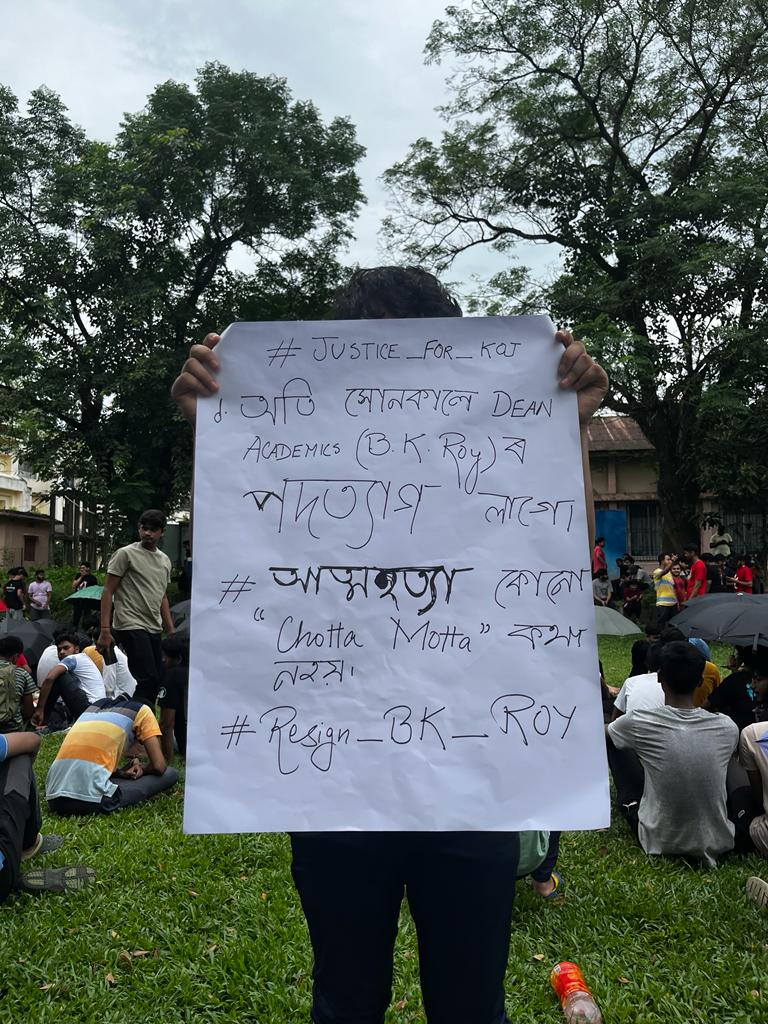 # JUSTICE_FOR_KOJ
অতি সোনকালে DEAN
ACADEMICS (B.K. Roy) ৰ
পদত্যাগ লাগে।
# আত্মহত্যা কোনো
"Chotta Motta" কথা
নহয়।
# Resign_BK_ROY